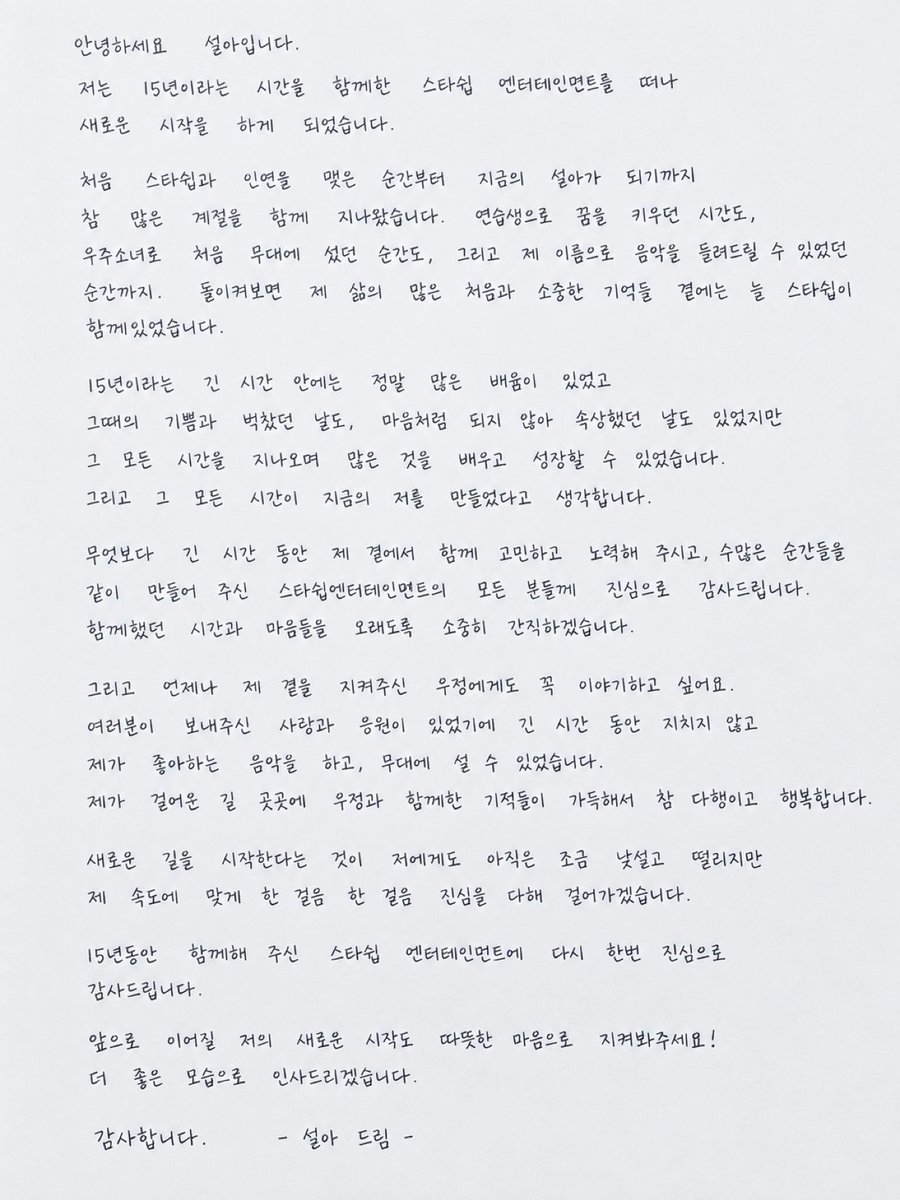 안녕하세요 설아입니다.
저는 15년이라는 시간을 함께한 스타쉽 엔터테인먼트를 떠나
새로운 시작을 하게 되었습니다.
처음 스타쉽과 인연을 맺은 순간부터 지금의 설아가 되기까지
참 많은 계절을 함께 지나왔습니다. 연습생으로 꿈을 키우던 시간도,
우주소녀로 처음 무대에 섰던 순간도, 그리고 제 이름으로 음악을 들려드릴 수 있었던
순간까지. 돌이켜보면 제 삶의 많은 처음과 소중한 기억들 곁에는 늘 스타쉽이
함께있었습니다.
15년이라는 긴 시간 안에는 정말 많은 배움이 있었고
그때의 기쁨과 벅찼던 날도, 마음처럼 되지 않아 속상했던 날도 있었지만
그 모든 시간을 지나오며 많은 것을 배우고 성장할 수 있었습니다.
그리고 그 모든 시간이 지금의 저를 만들었다고 생각합니다.
무엇보다 긴 시간 동안 제 곁에서 함께 고민하고 노력해 주시고, 수많은 순간들을
같이 만들어 주신 스타쉽엔터테인먼트의 모든 분들께 진심으로 감사드립니다.
함께했던 시간과 마음들을 오래도록 소중히 간직하겠습니다.
그리고 언제나 제 곁을 지켜주신 우정에게도 꼭 이야기하고 싶어요.
여러분이 보내주신 사랑과 응원이 있었기에 긴 시간 동안 지치지 않고
제가 좋아하는 음악을 하고, 무대에 설 수 있었습니다.
제가 걸어온 길 곳곳에 우정과 함께한 기적들이 가득해서 참 다행이고 행복합니다.
새로운 길을 시작한다는 것이 저에게도 아직은 조금 낯설고 떨리지만
제 속도에 맞게 한 걸음 한 걸음 진심을 다해 걸어가겠습니다.
15년동안 함께해 주신 스타쉽 엔터테인먼트에 다시 한번 진심으로
감사드립니다.
앞으로 이어질 저의 새로운 시작도 따뜻한 마음으로 지켜봐주세요!
더 좋은 모습으로 인사드리겠습니다.
감사합니다. - 설아 드림 -